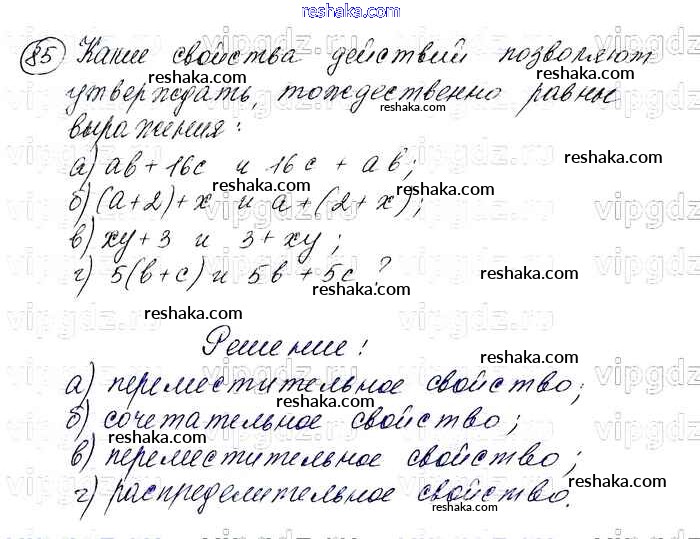 reshaka.com
85 Какие свойства действий позволяют
reshaka.com reshaka.com
утверждать, тождественно равны
reshaka.com
выражения:
reshaka.com
а) ab + 16c и 16c + ab;
reshaka.com
б) (a+2)+x и a+(2+x);
reshaka.com
в) xy + 3 и 3 + xy;
reshaka.com
г) 5(b+c) и 5b + 5c ?
reshaka.com
reshaka.com
Решение:
reshaka.com
а) переместительное свойство;
reshaka.com
б) сочетательное свойство;
reshaka.com
в) переместительное свойство;
reshaka.com
г) распределительное свойство.
reshaka.com
vipgdz